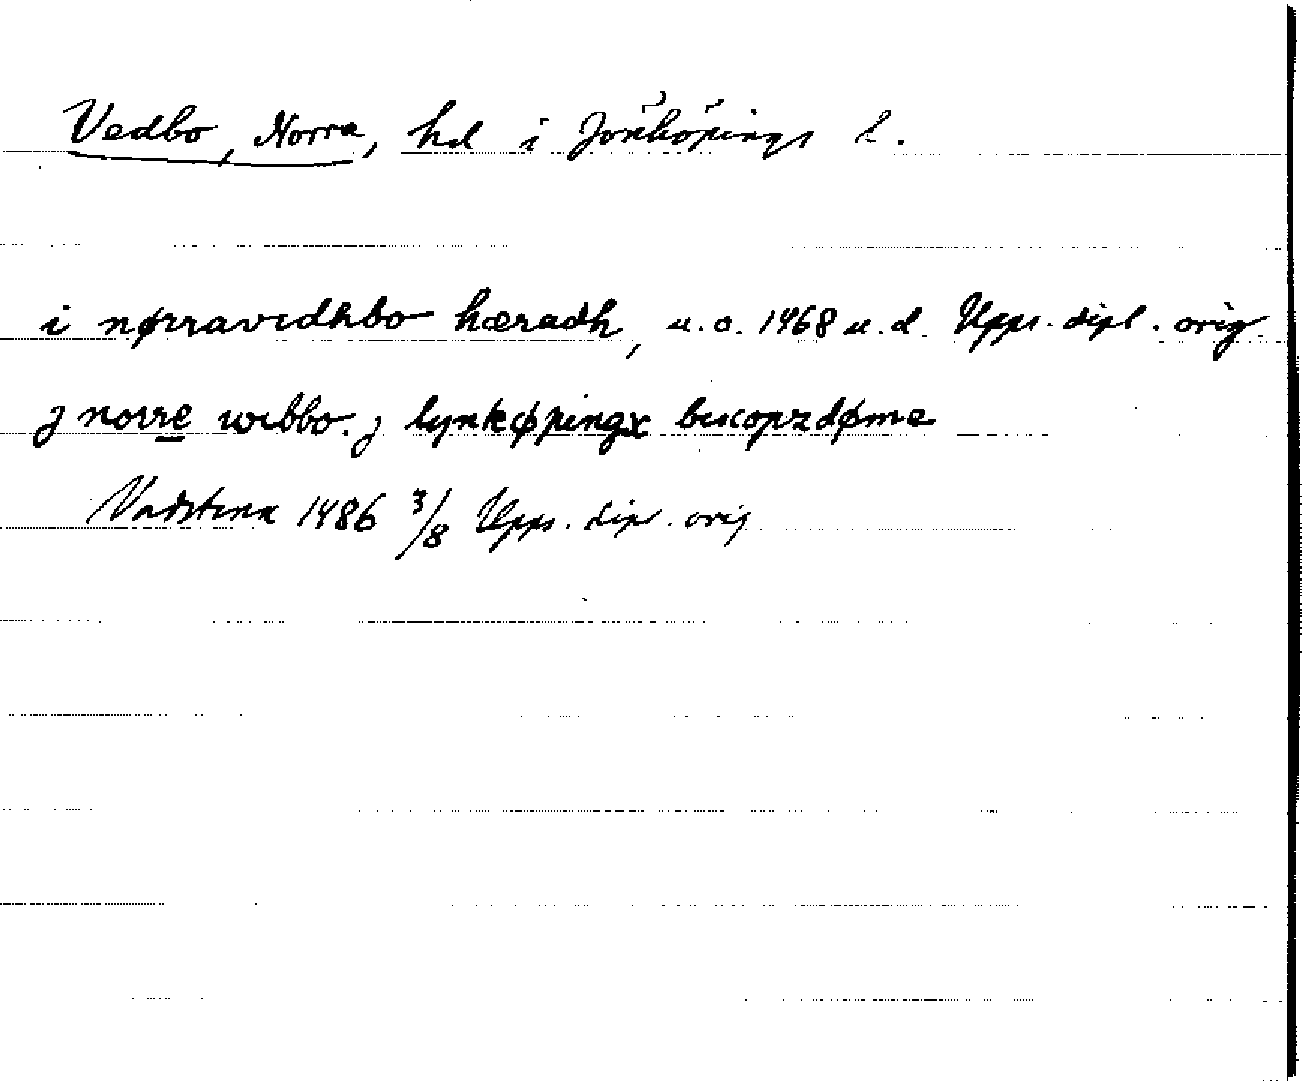 Vedbo, Norra, hd i Jönköpings l.
i nørravidhbo hæradh, u.o. 1468 u.d. Upps. dipl. orig.
j norre wibbo. j lynkøpingx biscopzdøme
Vadstena 1486 3/8 Upps. dipl. orig